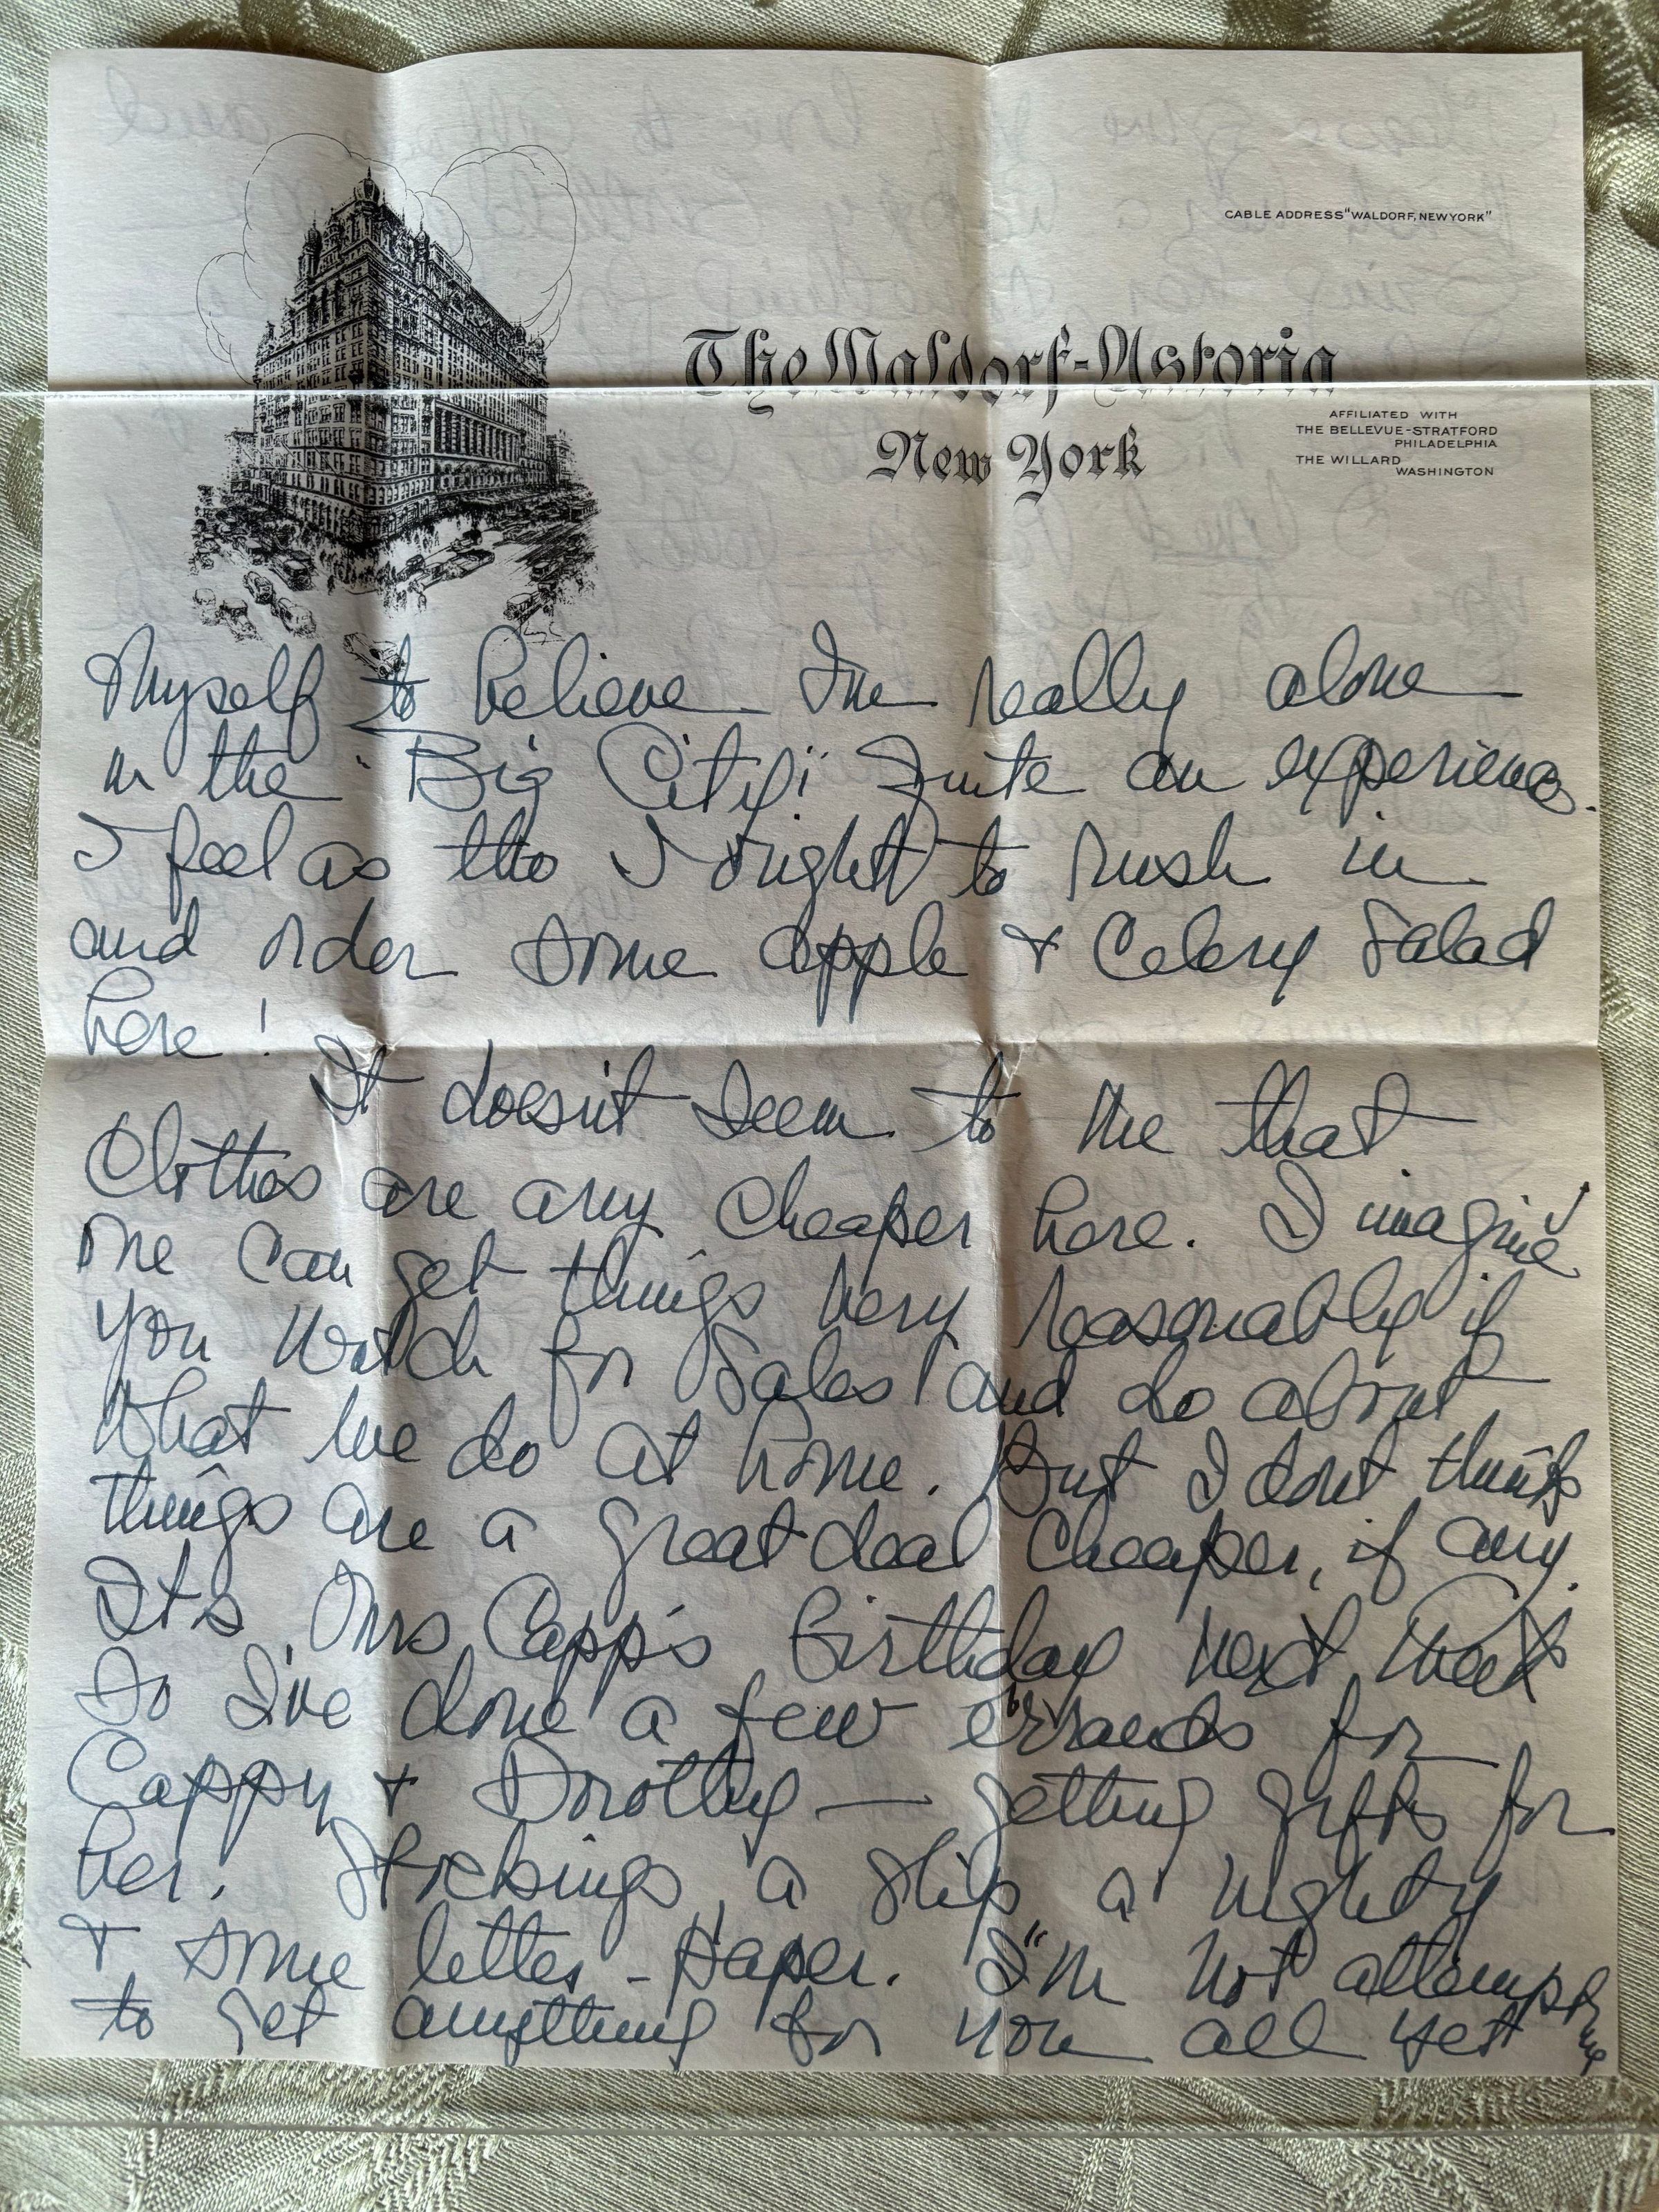 CABLE ADDRESS "WALDORF, NEWYORK"
The Waldorf-Astoria
New York
AFFILIATED WITH
THE BELLEVUE-STRATFORD
PHILADELPHIA
THE WILLARD
WASHINGTON
Myself to believe I'm really alone
in the "Big City". Quite an experience.
I feel as tho I ought to rush in
and order some apple + Celery Salad
here!
It doesn't seem to me that
Clothes are any cheaper here. I imagine
one can get things very reasonably if
you watch for Sales and do about
what we do at home. But I dont think
things are a great deal cheaper, if any.
Its Mrs Capp's Birthday next week
So I've done a few errands for
Cappy + Dorothy — getting gifts for
her. Stockings, a slip a nighty
+ some letter-paper. I'm not attempting
to get anything for you all yet